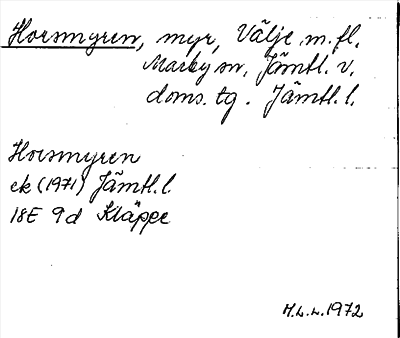 Horsmyren, myr, Välje m.fl.
Marby sn, Jämtl. v.
doms. tg. Jämtl. l.
Horsmyren
ek (1971) Jämtl. l.
18E 9d Kläppe
H.L.L. 1972